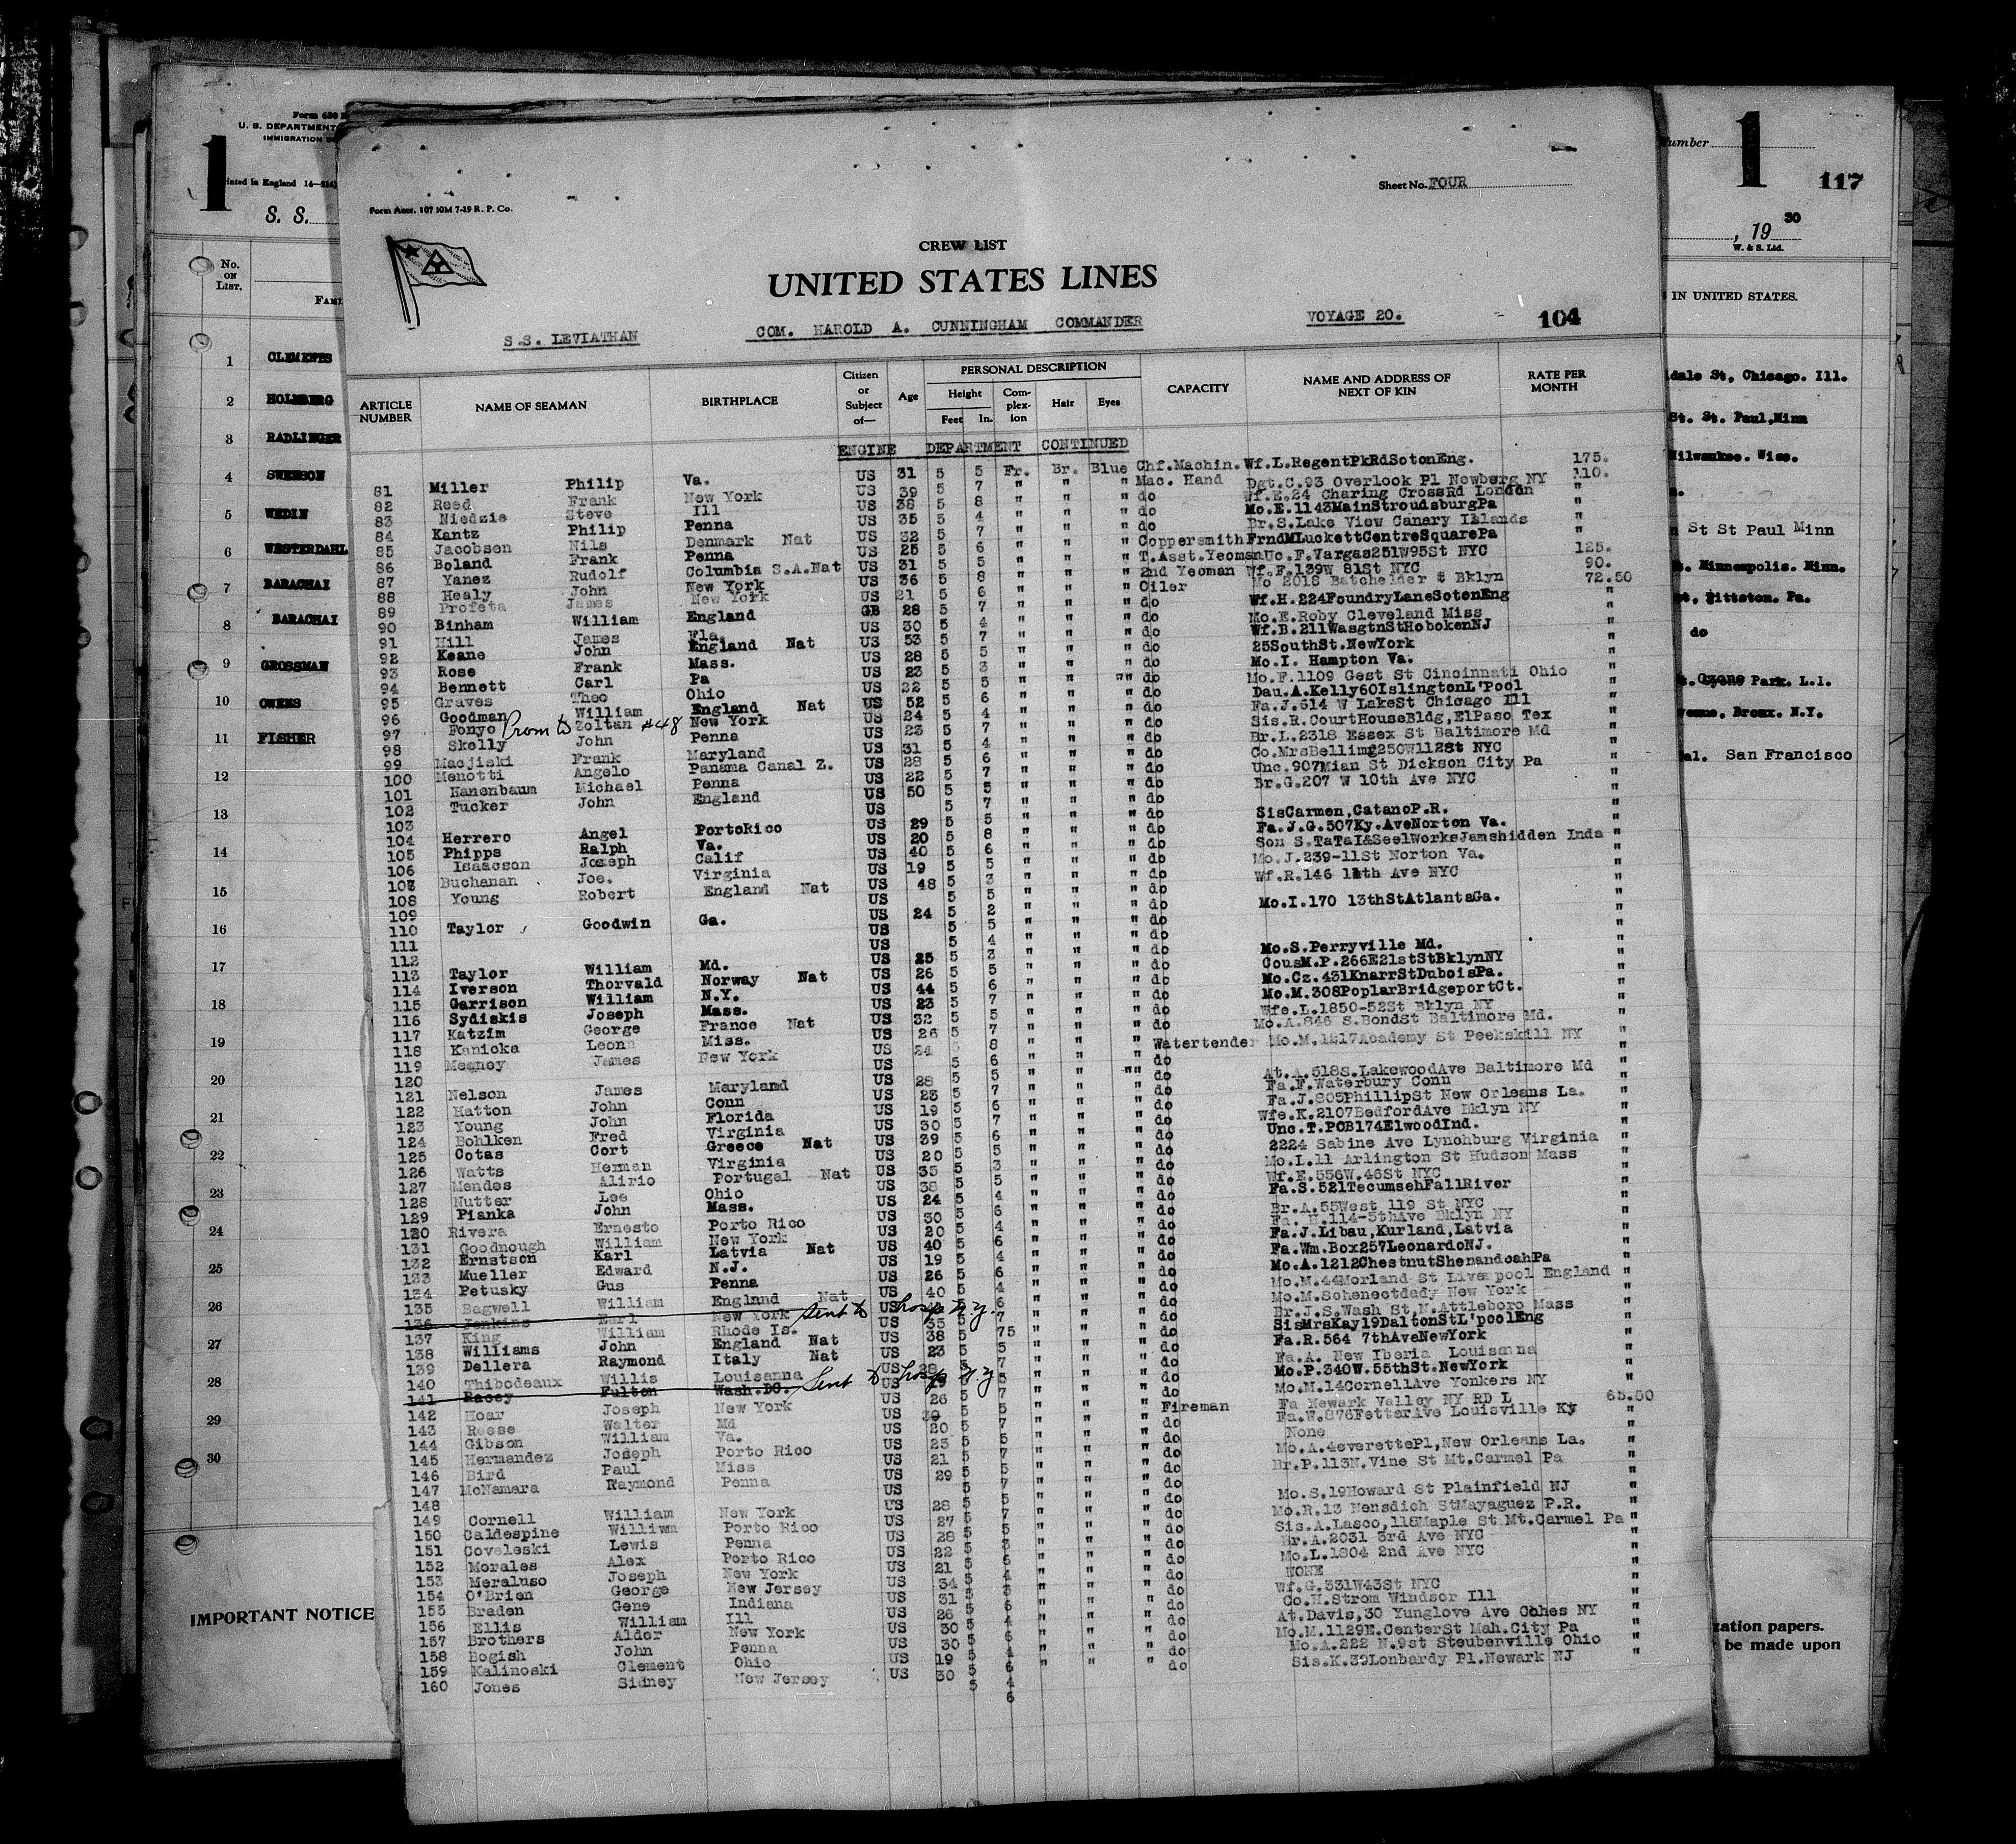 Form 630
U. S. DEPARTMENT
IMMIGRATION
1
Printed in England 14—214
S. S.
No. ON LIST.
1 CLEMENTS
2 HOLMBERG
3 RADLINGER
4 SWENSON
5 WEDIN
6 WESTERDAHL
7 BARACHAI
8 BARACHAI
9 GROSSMAN
10 OWENS
11 FISHER
12
13
14
15
16
17
18
19
20
21
22
23
24
25
26
27
28
29
30
IMPORTANT NOTICE
Form Acct. 107 10M 7-29 R. P. Co.
Sheet No. FOUR
CREW LIST
UNITED STATES LINES
S.S. LEVIATHAN COM. HAROLD A. CUNNINGHAM COMMANDER VOYAGE 20. 104
ARTICLE NUMBER NAME OF SEAMAN BIRTHPLACE Citizen or Subject of— Age PERSONAL DESCRIPTION Height Feet In. Complexion Hair Eyes CAPACITY NAME AND ADDRESS OF NEXT OF KIN RATE PER MONTH
ENGINE DEPARTMENT CONTINUED
81 Miller Philip Va. US 31 5 5 Fr. Br. Blue Chf.Machin. Wf.L.RegentPkRdSotonEng. 175.
82 Reed Frank New York US 39 5 7 " " " Mac. Hand Dgt.C.93 Overlook Pl Newberg NY 110.
83 Niedzie Steve Ill US 38 5 8 " " " do Wf.E.24 Charing CrossRd London "
84 Kantz Philip Penna US 35 5 4 " " " do Mo.E.1143MainStroudsburgPa "
85 Jacobsen Nils Denmark Nat US 32 5 7 " " " do Br.S.Lake View Canary Islands "
86 Boland Frank Penna US 25 5 6 " " " Coppersmith FrndMLuckettCentreSquarePa "
87 Yanez Rudolf Columbia S.A.Nat US 31 5 5 " " " T.Asst.Yeoman Uc.F.Vargas251W95St NYC 125.
88 Healy John New York US 36 5 8 " " " 2nd Yeoman Wf.F.139W 81St NYC 90.
89 Profeta James New York US 21 5 6 " " " Oiler Mo 2018 Batchelder $ Bklyn 72.50
90 Binham William England GB 28 5 7 " " " do Wf.H.224FoundryLaneSotonEng "
91 Hill James Fla. US 30 5 4 " " " do Mo.E.Roby Cleveland Miss "
92 Keane John England Nat US 53 5 7 " " " do Wf.B.211WasgtnStHobokenNJ "
93 Rose Frank Mass. US 28 5 5 " " " do 25SouthSt.NewYork "
94 Bennett Carl Pa US 23 5 3 " " " do Mo.I. Hampton Va. "
95 Graves Theo Ohio US 22 5 5 " " "" do Mo.F.1109 Gest St Cincinnati Ohio "
96 Goodman William England Nat US 52 5 6 " " " do Dau.A.Kelly60IslingtonL'Pool "
97 Fonyo Prom to Zoltan #48 New York US 24 5 4 " " " do Fa.J.614 W LakeSt Chicago Ill "
98 Skelly John Penna US 23 5 7 " " " do Sis.R.CourtHouseBldg,ElPaso Tex "
99 Macjiski Frank Maryland US 31 5 4 " " " do Br.L.2318 Essex St Baltimore Md "
100 Menotti Angelo Panama Canal Z. US 28 5 6 " " " do Co.MrsBelling250W112St NYC "
101 Hanenbaum Michael Penna US 22 5 7 " " " do Unc.907Mian St Dickson City Pa "
102 Tucker John England US 50 5 5 " " " do Br.G.207 W 10th Ave NYC "
103 US 5 7 " " " do "
104 Herrero Angel PortoRico US 29 5 5 " " " do SisCarmen,CatanoP.R. "
105 Phipps Ralph Va. US 20 5 8 " " " do Fa.J.G.507Ky.AveNorton Va. "
106 Isaacson Joseph Calif US 40 5 6 " " " do Son S.TaTaI&SeelWorksJamshidden Inda "
107 Buchanan Joe. Virginia US 19 5 5 " " " do Mo.J.239-11St Norton Va. "
108 Young Robert England Nat US 48 5 3 " " " do Wf.R.146 11th Ave NYC "
109 US 5 5 " " " do "
110 Taylor Goodwin Ga. US 24 5 2 " " " do Mo.I.170 13thStAtlantaGa. "
111 US 5 5 " " " do "
112 US 5 4 " " " do "
113 Taylor William Md. US 25 5 3 " " " do Mo.S.Perryville Md. "
114 Iverson Thorvald Norway Nat US 26 5 5 " " " do CousM.P.266E21stStBklynNY "
115 Garrison William N.Y. US 44 5 6 " " " do Mo.Cz.431KnarrStDuboisPa. "
116 Sydiskis Joseph Mass. US 23 5 7 " " " do Mo.M.308PoplarBridgeportCt. "
117 Katzim George France Nat US 32 5 5 " " " do Wfe.L.1850-52St Bklyn NY "
118 Kanicka Leon Miss. US 26 5 7 " " " do Mo.A.846 S.BondSt Baltimore Md. "
119 Meaney James New York US 24 5 8 " " " Watertender Mo.M.1217Academy St Peekskill NY "
120 US 5 6 " " " do "
121 Nelson James Maryland US 28 5 5 " " "" do At.A.518S.LakewoodAve Baltimore Md "
122 Hatton John Conn US 23 5 7 " " " do Fa.F.Waterbury Conn "
123 Young John Florida US 19 5 6 " " " do Fa.J.805PhillipSt New Orleans La. "
124 Bohlken Fred Virginia US 30 5 7 " " " do Wfe.K.2107BedfordAve Bklyn NY "
125 Cotas Cort Greece Nat US 39 5 6 " " " do Unc.T.POB174ElwoodInd. "
126 Watts Herman Virginia US 20 5 5 " " " do 2224 Sabine Ave Lynchburg Virginia "
127 Mendes Alirio Portugal Nat US 35 5 3 " " " do Mo.L.11 Arlington St Hudson Mass "
128 Nutter Lee Ohio US 38 5 5 " " " do Wf.E.556W.46St NYC "
129 Pianka John Mass. US 24 5 4 " " " do Fa.S.521TecumsehFallRiver "
130 Rivera Ernesto Porto Rico US 30 5 6 " " " do Br.A.55West 119 St NYC "
131 Goodnough William New York US 20 5 4 " " " do Fa. W.114-5thAve Bklyn NY "
132 Ernstson Karl Latvia Nat US 40 5 6 " " " do Fa.J.Libau,Kurland,Latvia "
133 Mueller Edward N.J. US 19 5 4 " " " do Fa.Wm.Box257LeonardoNJ. "
134 Petusky Gus Penna US 26 5 6 " " " do Mo.A.1212ChestnutShenandoahPa "
135 Bagwell William England Nat US 40 5 4 " " " do Mo.M.44Morland St Liverpool England "
136 Jenkins Earl New York Sent to Hosp N.Y. US 5 6 " " " do Mo.M.Schenectdady New York "
137 King William Rhode Is. US 35 5 7 " " " do Br.J.S.Wash St,N.Attleboro Mass "
138 Williams John England Nat US 38 5 75 " " " do SisMrsKay19DaltonStL'poolEng "
139 Dellera Raymond Italy Nat US 23 5 5 " " " do Fa.R.564 7thAveNewYork "
140 Thibodeaux Willis Louisanna US 28 5 7 " " " do Fa.A. New Iberia Louisanna "
141 Racey Fulton Wash.DC. Sent to Hosp N.Y US 5 5 " " " do Mo.P.340W.55thSt.NewYork "
142 Hoar Joseph New York US 26 5 7 " " " do Mo.M.14CornellAve Yonkers NY "
143 Reese Walter Md US 39 5 5 " " " Fireman Fa Newark Valley NY RD L 65.50
144 Gibson William Va. US 20 5 7 " " " do Fa.W.876FetterAve Louisville Ky "
145 Hernandez Joseph Porto Rico US 23 5 5 " " " do None "
146 Bird Paul Miss US 21 5 7 " " " do Mo.A.4everettePl,New Orleans La. "
147 McNamara Raymond Penna US 29 5 5 " " " do Br.P.113N.Vine St Mt.Carmel Pa "
148 US 5 7 " " " do "
149 Cornell William New York US 28 5 5 " " " do Mo.S.19Howard St Plainfield NJ "
150 Caldespine William Porto Rico US 27 5 7 " " " do Mo.R.13 Nensdich StMayaguez P.R. "
151 Coveleski Lewis Penna US 28 5 5 " " " do Sis.A.Lasco,118Maple St Mt.Carmel Pa "
152 Morales Alex Porto Rico US 22 5 3 " " " do Br.A.2031 3rd Ave NYC "
153 Meraluso Joseph New York US 21 5 6 " " " do Mo.L.1804 2nd Ave NYC "
154 O'Brien George New Jersey US 34 5 4 " " " do NONE "
155 Braden Gene Indiana US 31 5 3 " " " do Wf.G.331W43St NYC "
156 Ellis William Ill US 26 5 6 " " " do Co.H.Strom Windsor Ill "
157 Brothers Alder New York US 30 5 4 " " " do At.Davis,30 Yunglove Ave Cohes NY "
158 Bogish John Penna US 30 5 6 " " " do Mo.M.1129E.CenterSt Mah.City Pa "
159 Kalinoski Clement Ohio US 19 5 4 " " " do Mo.A.222 N.9st Steubenville Ohio "
160 Jones Sidney New Jersey US 30 5 6 " " " do Sis.K.39Lonbardy Pl.Newark NJ "
5 4
6
Number 1 117
, 19 30
W. & S. Ltd.
IN UNITED STATES.
dale St, Chicago. Ill.
St. St. Paul,Minn
Milwaukee. Wisc.
n St St Paul Minn
Minneapolis. Minn.
Pittston. Pa.
do
Ozone Park. L.I.
Bronx. N.Y.
Cal. San Francisco
zation papers.
be made upon